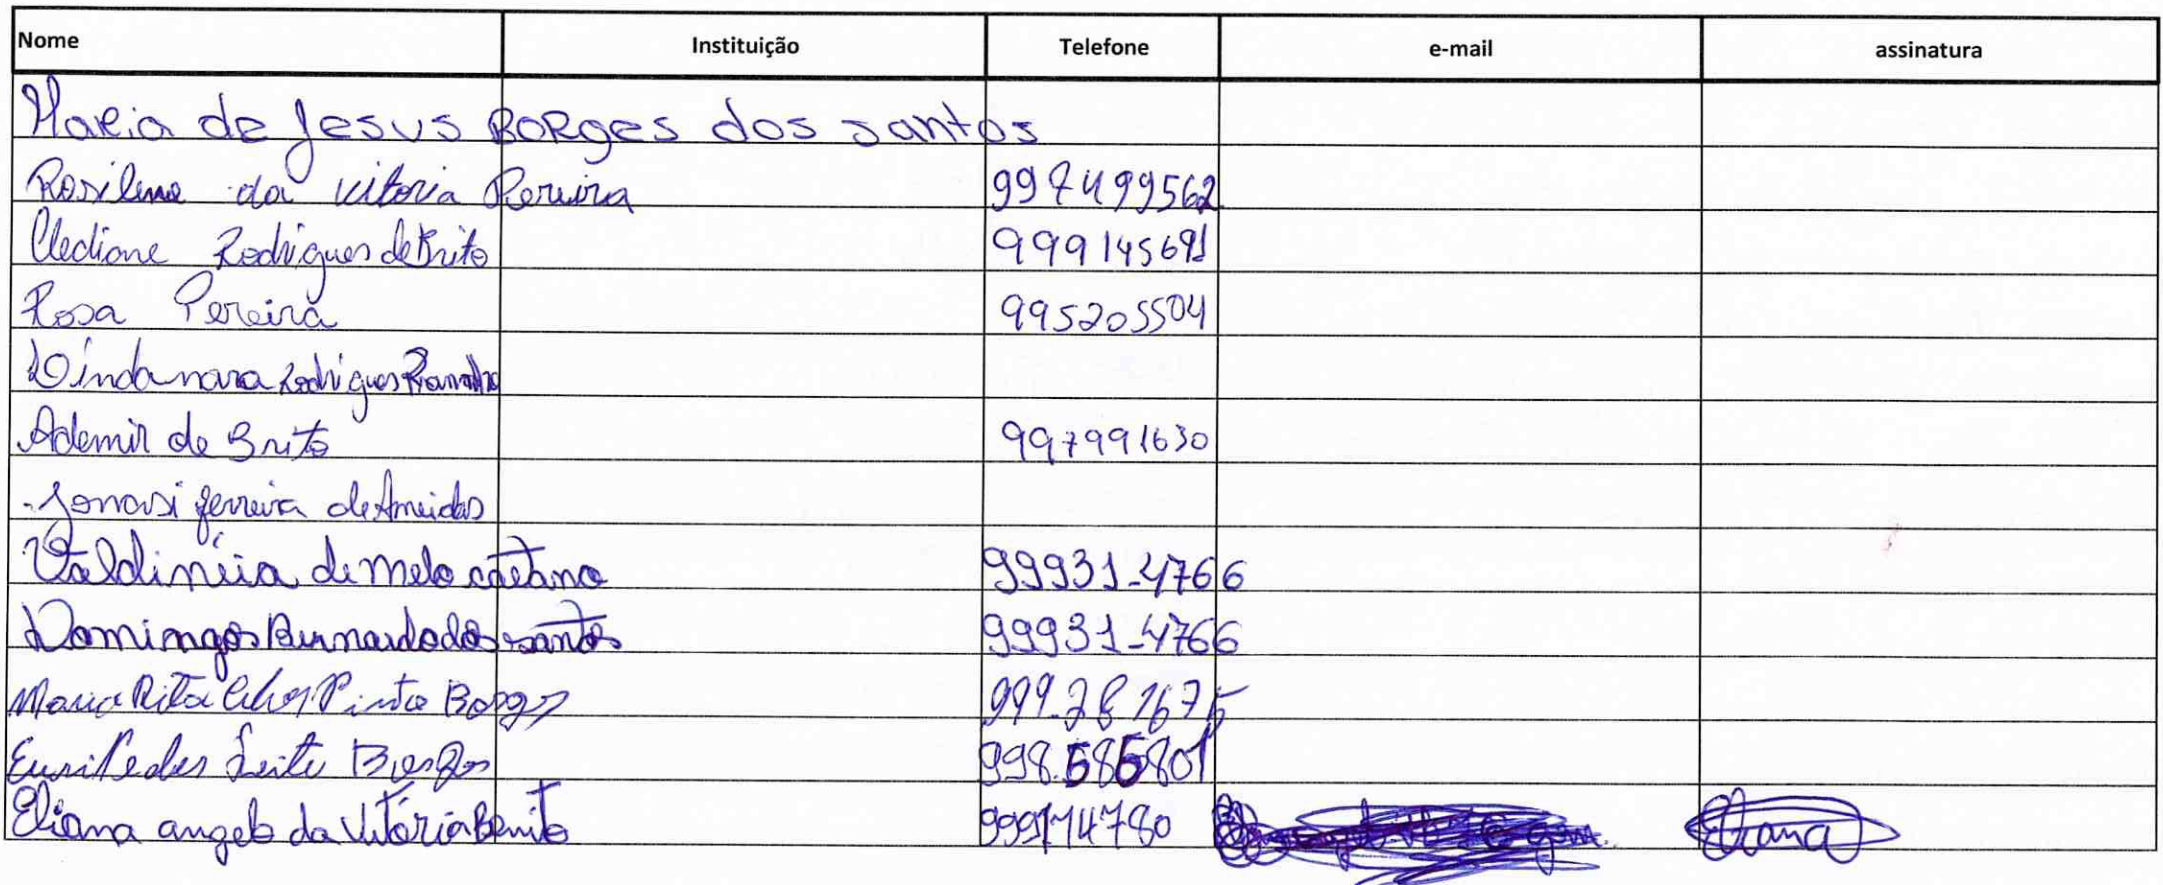 Nome Instituição Telefone e-mail assinatura
Maria de Jesus Borges dos santos
Rosilene da vitoria Pereira 997499562
Clediane Rodrigues de Brito 999145691
Rosa Pereira 995205504
Lindanara Rodrigues Ramalho
Ademir de Brito 997991630
ferreira de Ameidas
Valdinéia de melo caetano 99931-4766
Domingos Bernardo dos santos 99931-4766
Maria Rita Pinto Borges
Leite Borges 998.585801
Eliana angelo da Vitória Benito 999714780 Eliana